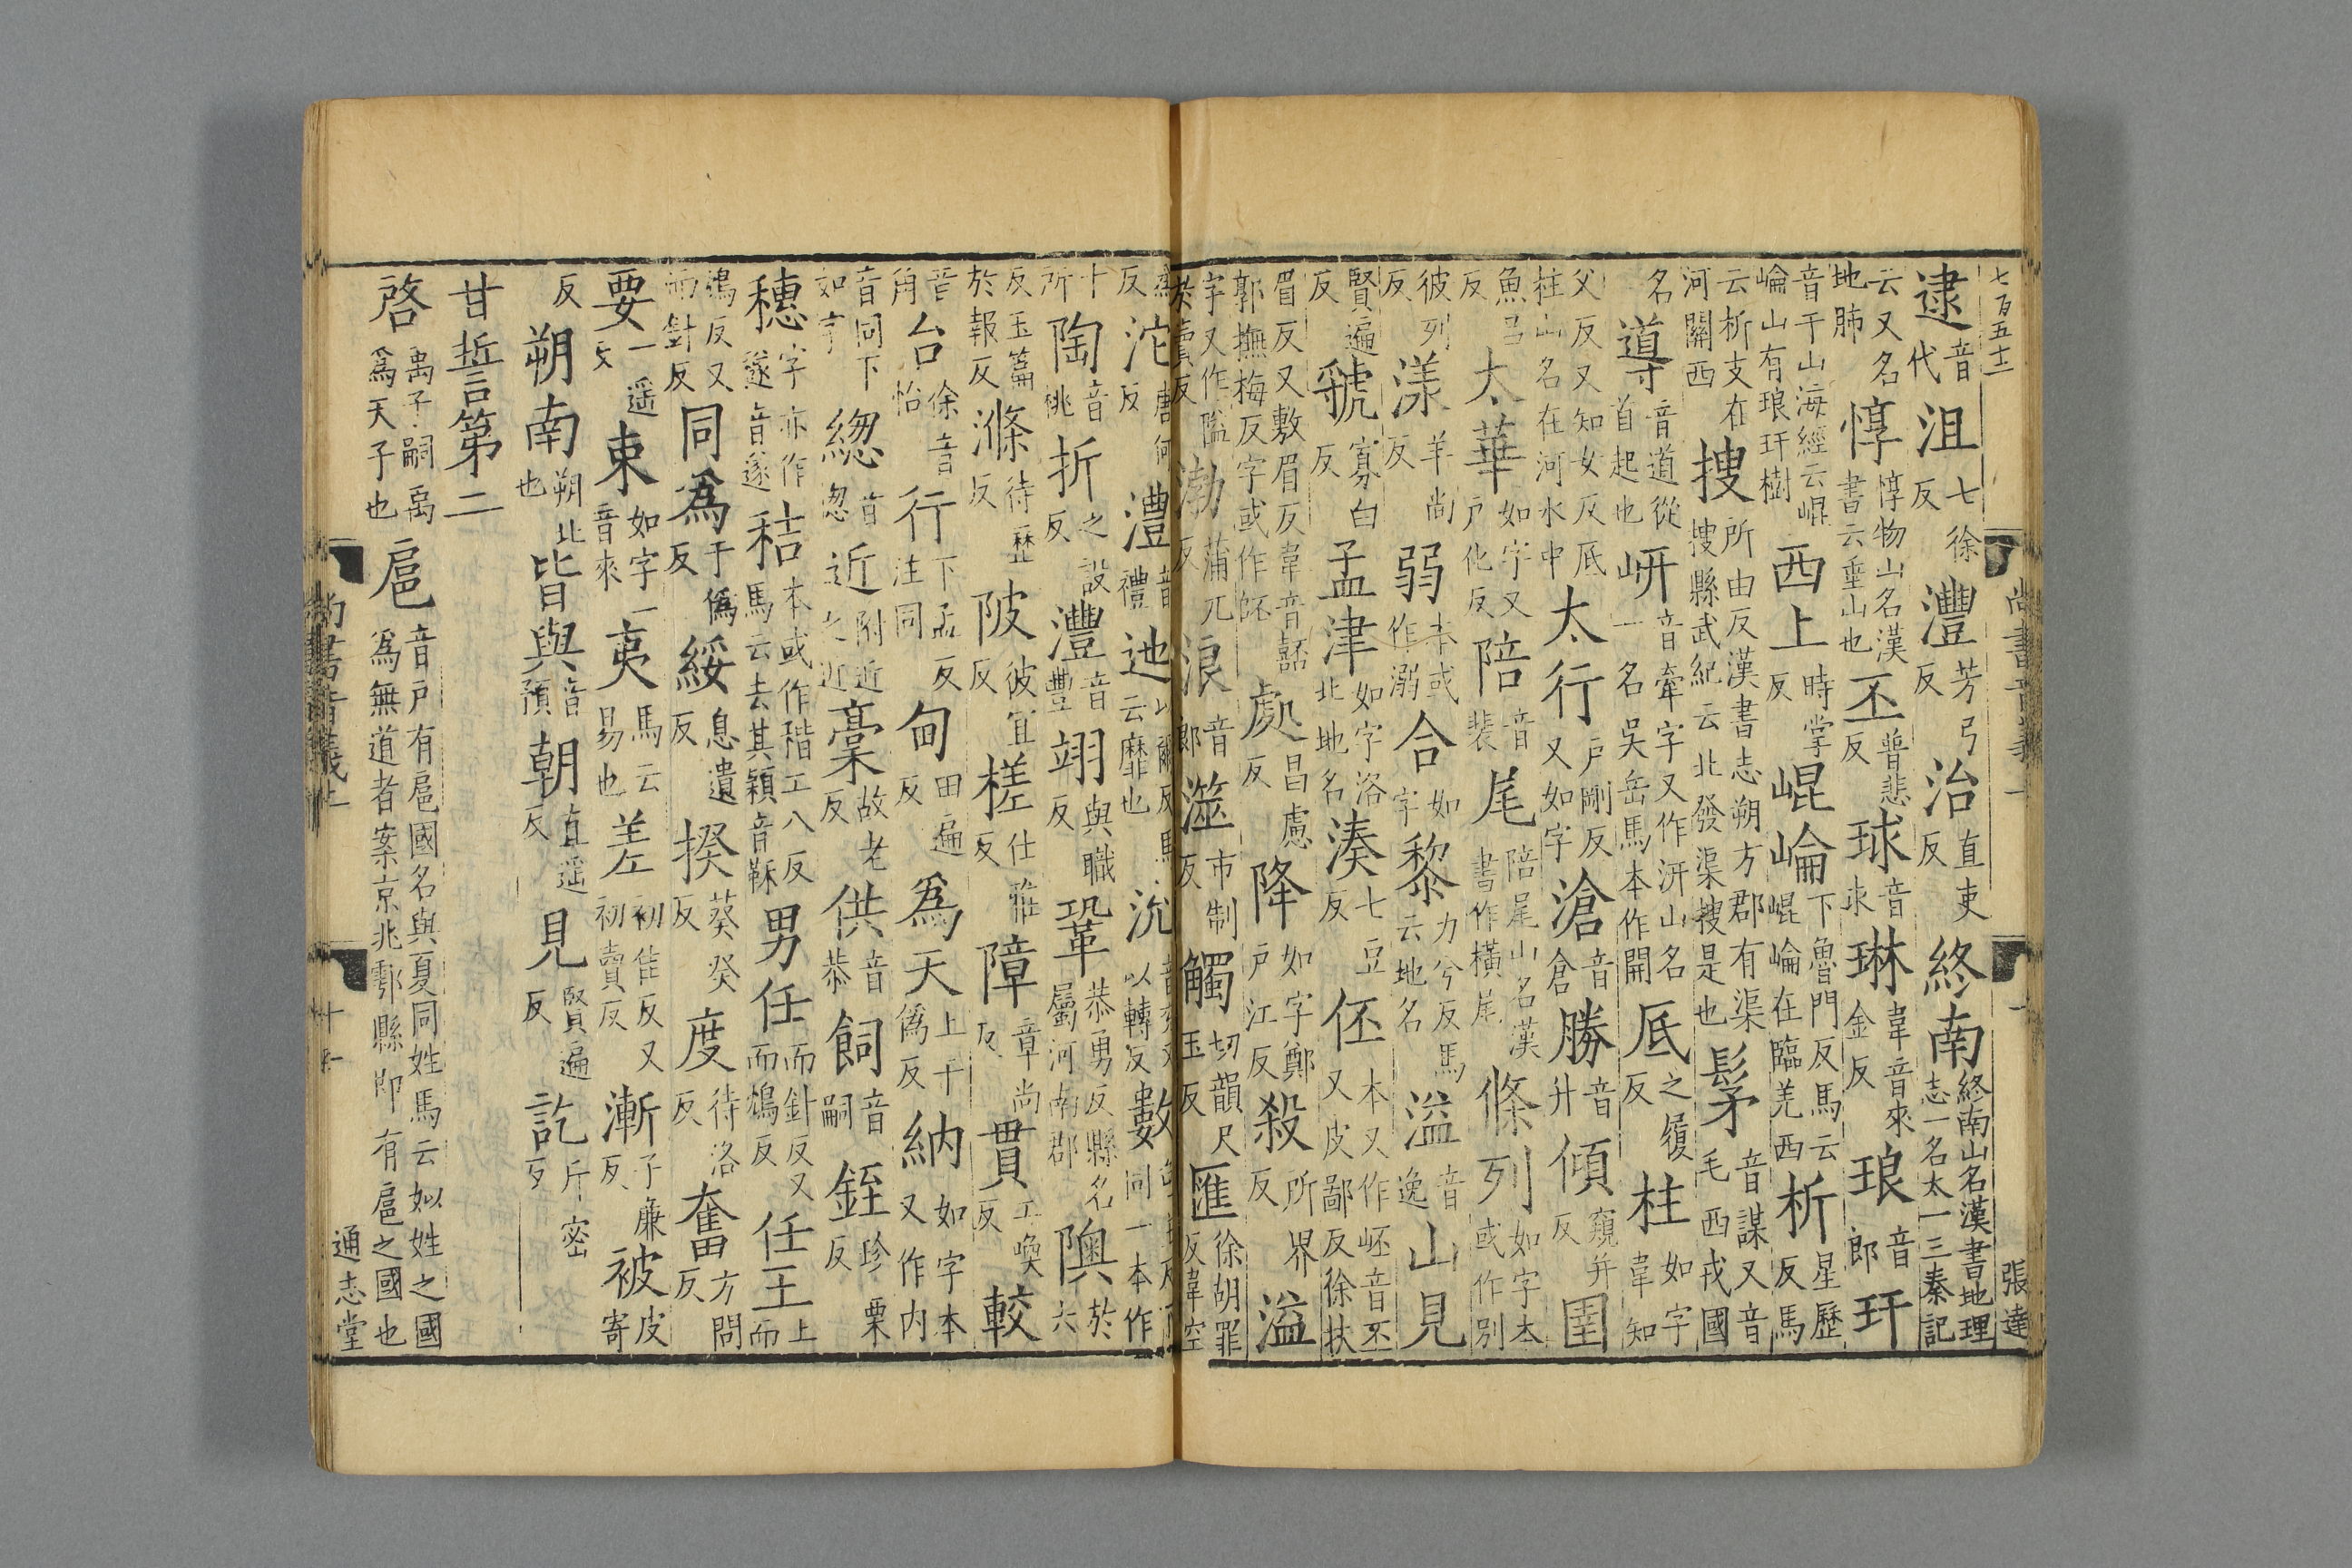 七百五十二 尚書音義上 張達
逮音代 沮七徐反 灃芳弓反 治直吏反 終南終南山名漢書地理志一名太一三秦記
云又名地肺 惇惇物山名漢書云垂山也 丕普悲反 球音求 琳韋音來金反 琅音郎 玕
音干山海經云崐崘山有琅玕樹 西上時掌反 崐崘下魯門反馬云崐崘在臨羌西 析星歷反馬
云析支在河關西 搜所由反漢書志朔方郡有渠搜縣武紀云北發渠搜是也 髳音謀又音毛西戎國
名 導音道從首起也 岍音牽字又作汧山名一名吳岳馬本作開 厎之履反 柱如字韋知
父反又知女反厎柱山名在河水中 太行戶剛反又如字 滄音倉 勝音升 傾窺并反 圉
魚呂反 太華如字又戶化反 陪音裴 尾陪尾山名漢書作橫尾 條列如字本或作別
彼列反 漾羊尚反 弱本或作溺 合如字 黎力兮反馬云地名 溢音逸 山見
賢遍反 虢寡白反 孟津如字洛北地名 湊七豆反 伾本又作岯音丕又皮鄙反徐扶
眉反又敷眉反韋音嚭郭撫梅反字或作 處昌慮反 降如字鄭戶江反 殺所界反 溢
字又作隘於賣反 渤蒲兀反 浪音郎 澨市制反 觸切韻尺玉反 匯徐胡罪反韋空
為反 沱唐何反 澧音禮 迆以爾反馬云靡也 沇音兖又以轉反 數色主反下同一本作
十所 陶音桃 折之設反 灃音豐 翊與職反 鞏恭勇反縣名屬河南郡 隩於六
反玉篇於報反 滌待歷反 陂彼宜反 槎仕雅反 障章尚反 貫工喚反 較
音角 台徐音怡 行下孟反注同 甸田遍反 為天上于偽反 納如字本又作内
音同下如字 緫音怱 近附近之近 稾故老反 供音恭 飼音嗣 銍珍栗反
穗字亦作䆃音遂 秸本或作稭工八反馬云去其穎音鞂 男任而針反又而鴆反 任王上而
鴆反又而針反 同為于偽反 綏息遺反 揆葵癸反 度待洛反 奮方問反
要一遥反 束如字一音來 夷馬云易也 差初佳反又初賣反 漸子廉反 被皮寄
反 朔南朔北也 皆與音預 朝直遥反 見賢遍反 訖斤密反
甘誓第二
啓禹子嗣禹為天子也 扈音戶有扈國名與夏同姓馬云姒姓之國為無道者案京兆鄠縣即有扈之國也
尚書音義上 十一 通志堂